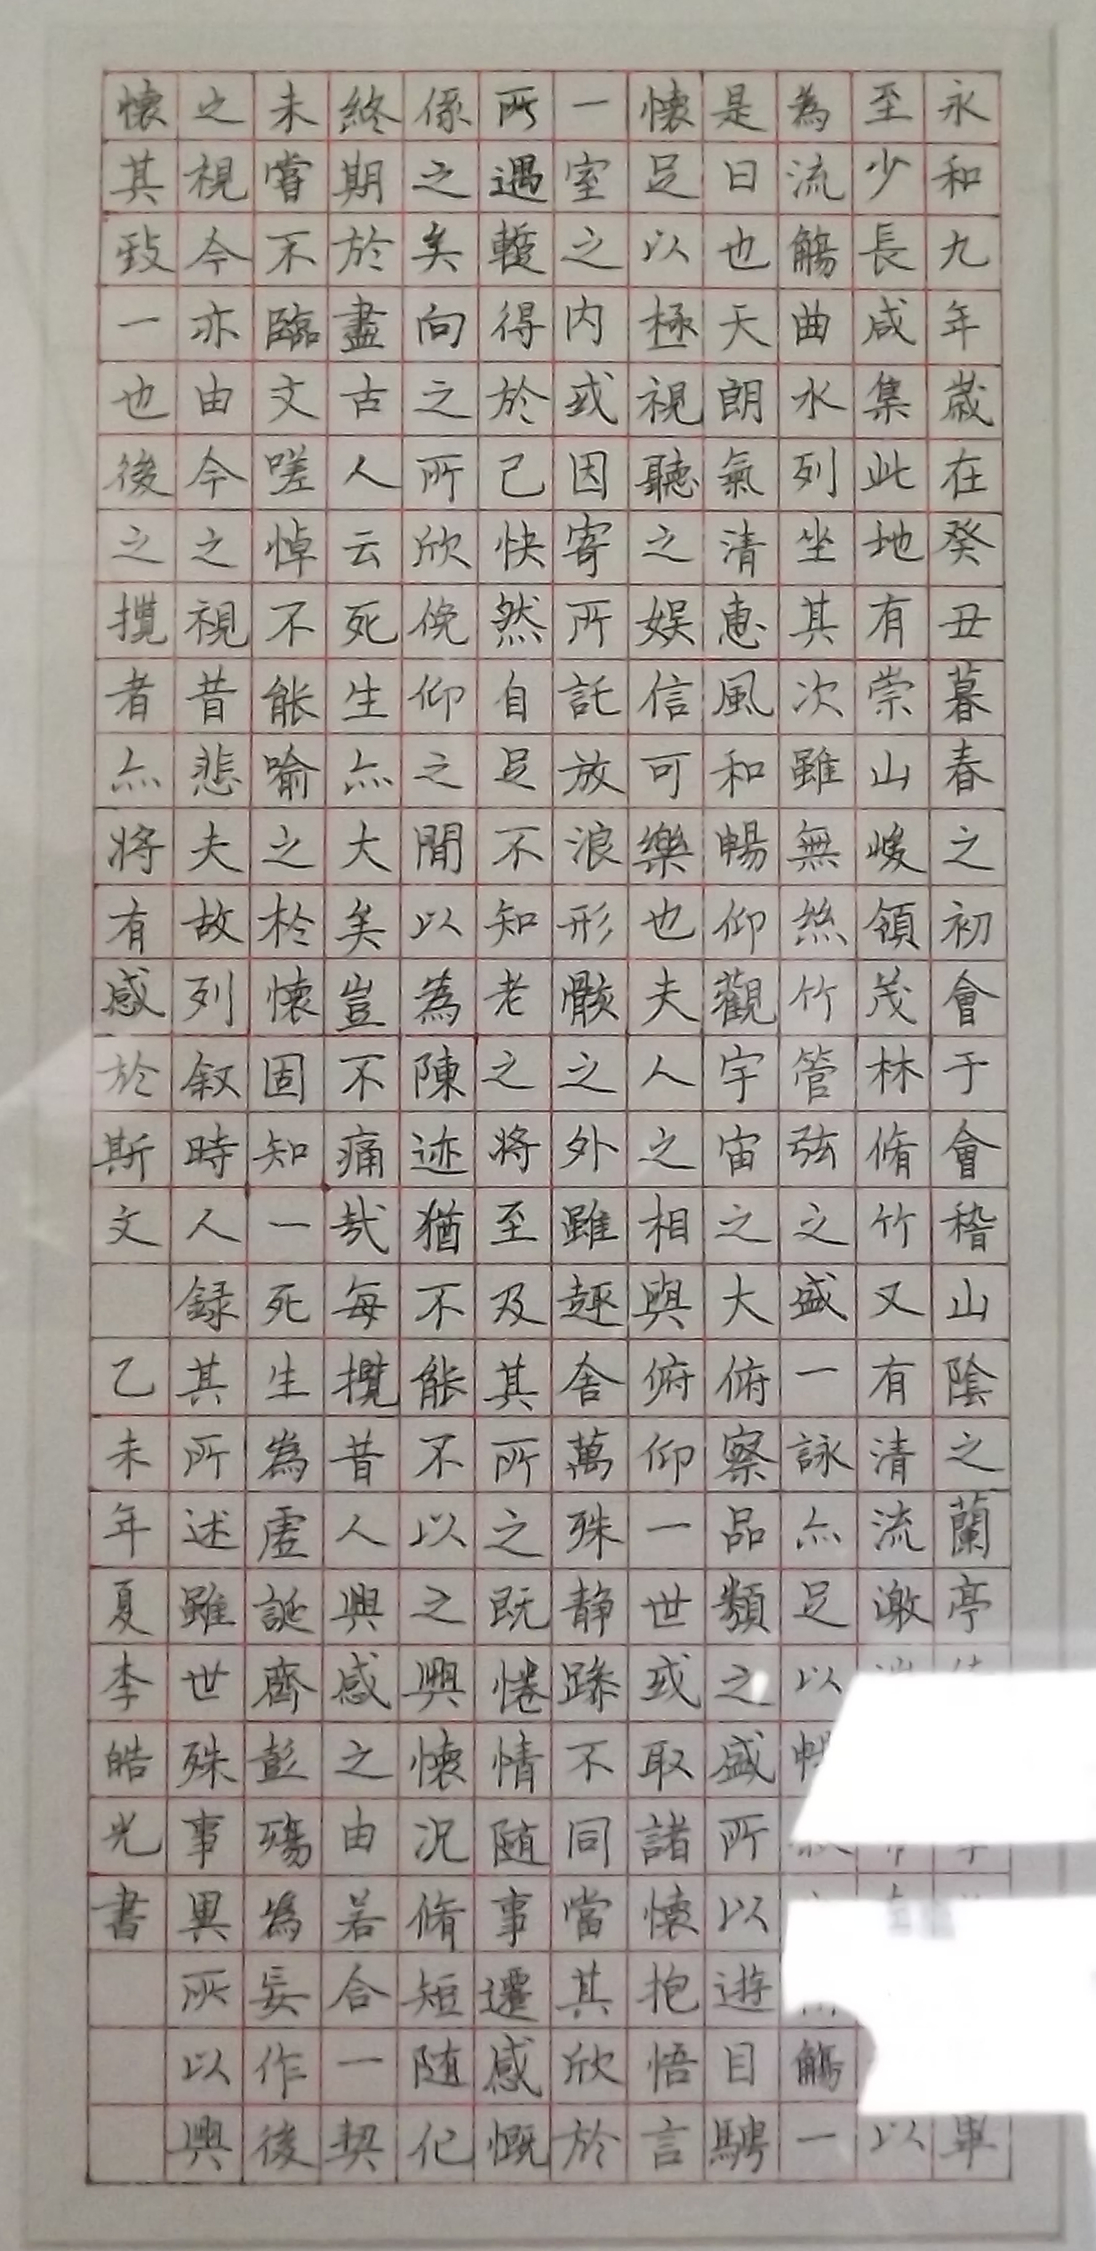 永和九年歲在癸丑暮春之初會于會稽山陰之蘭亭畢
至少長咸集此地有崇山峻領茂林脩竹又有清流激以
為流觴曲水列坐其次雖無絲竹管弦之盛一詠亦足以觴一
是日也天朗氣清惠風和暢仰觀宇宙之大俯察品類之盛所以遊目騁
懷足以極視聽之娛信可樂也夫人之相與俯仰一世或取諸懷抱悟言
一室之内或因寄所託放浪形骸之外雖趣舍萬殊静躁不同當其欣於
所遇蹔得於己快然自足不知老之將至及其所之既惓情随事遷感慨
係之矣向之所欣俛仰之閒以為陳迹猶不能不以之興懷况脩短随化
終期於盡古人云死生亦大矣豈不痛哉每攬昔人興感之由若合一契
未嘗不臨文嗟悼不能喻之於懷固知一死生為虛誕齊彭殤為妄作後
之視今亦由今之視昔悲夫故列叙時人録其所述雖世殊事異所以興
懷其致一也後之攬者亦將有感於斯文 乙未年夏李皓光書